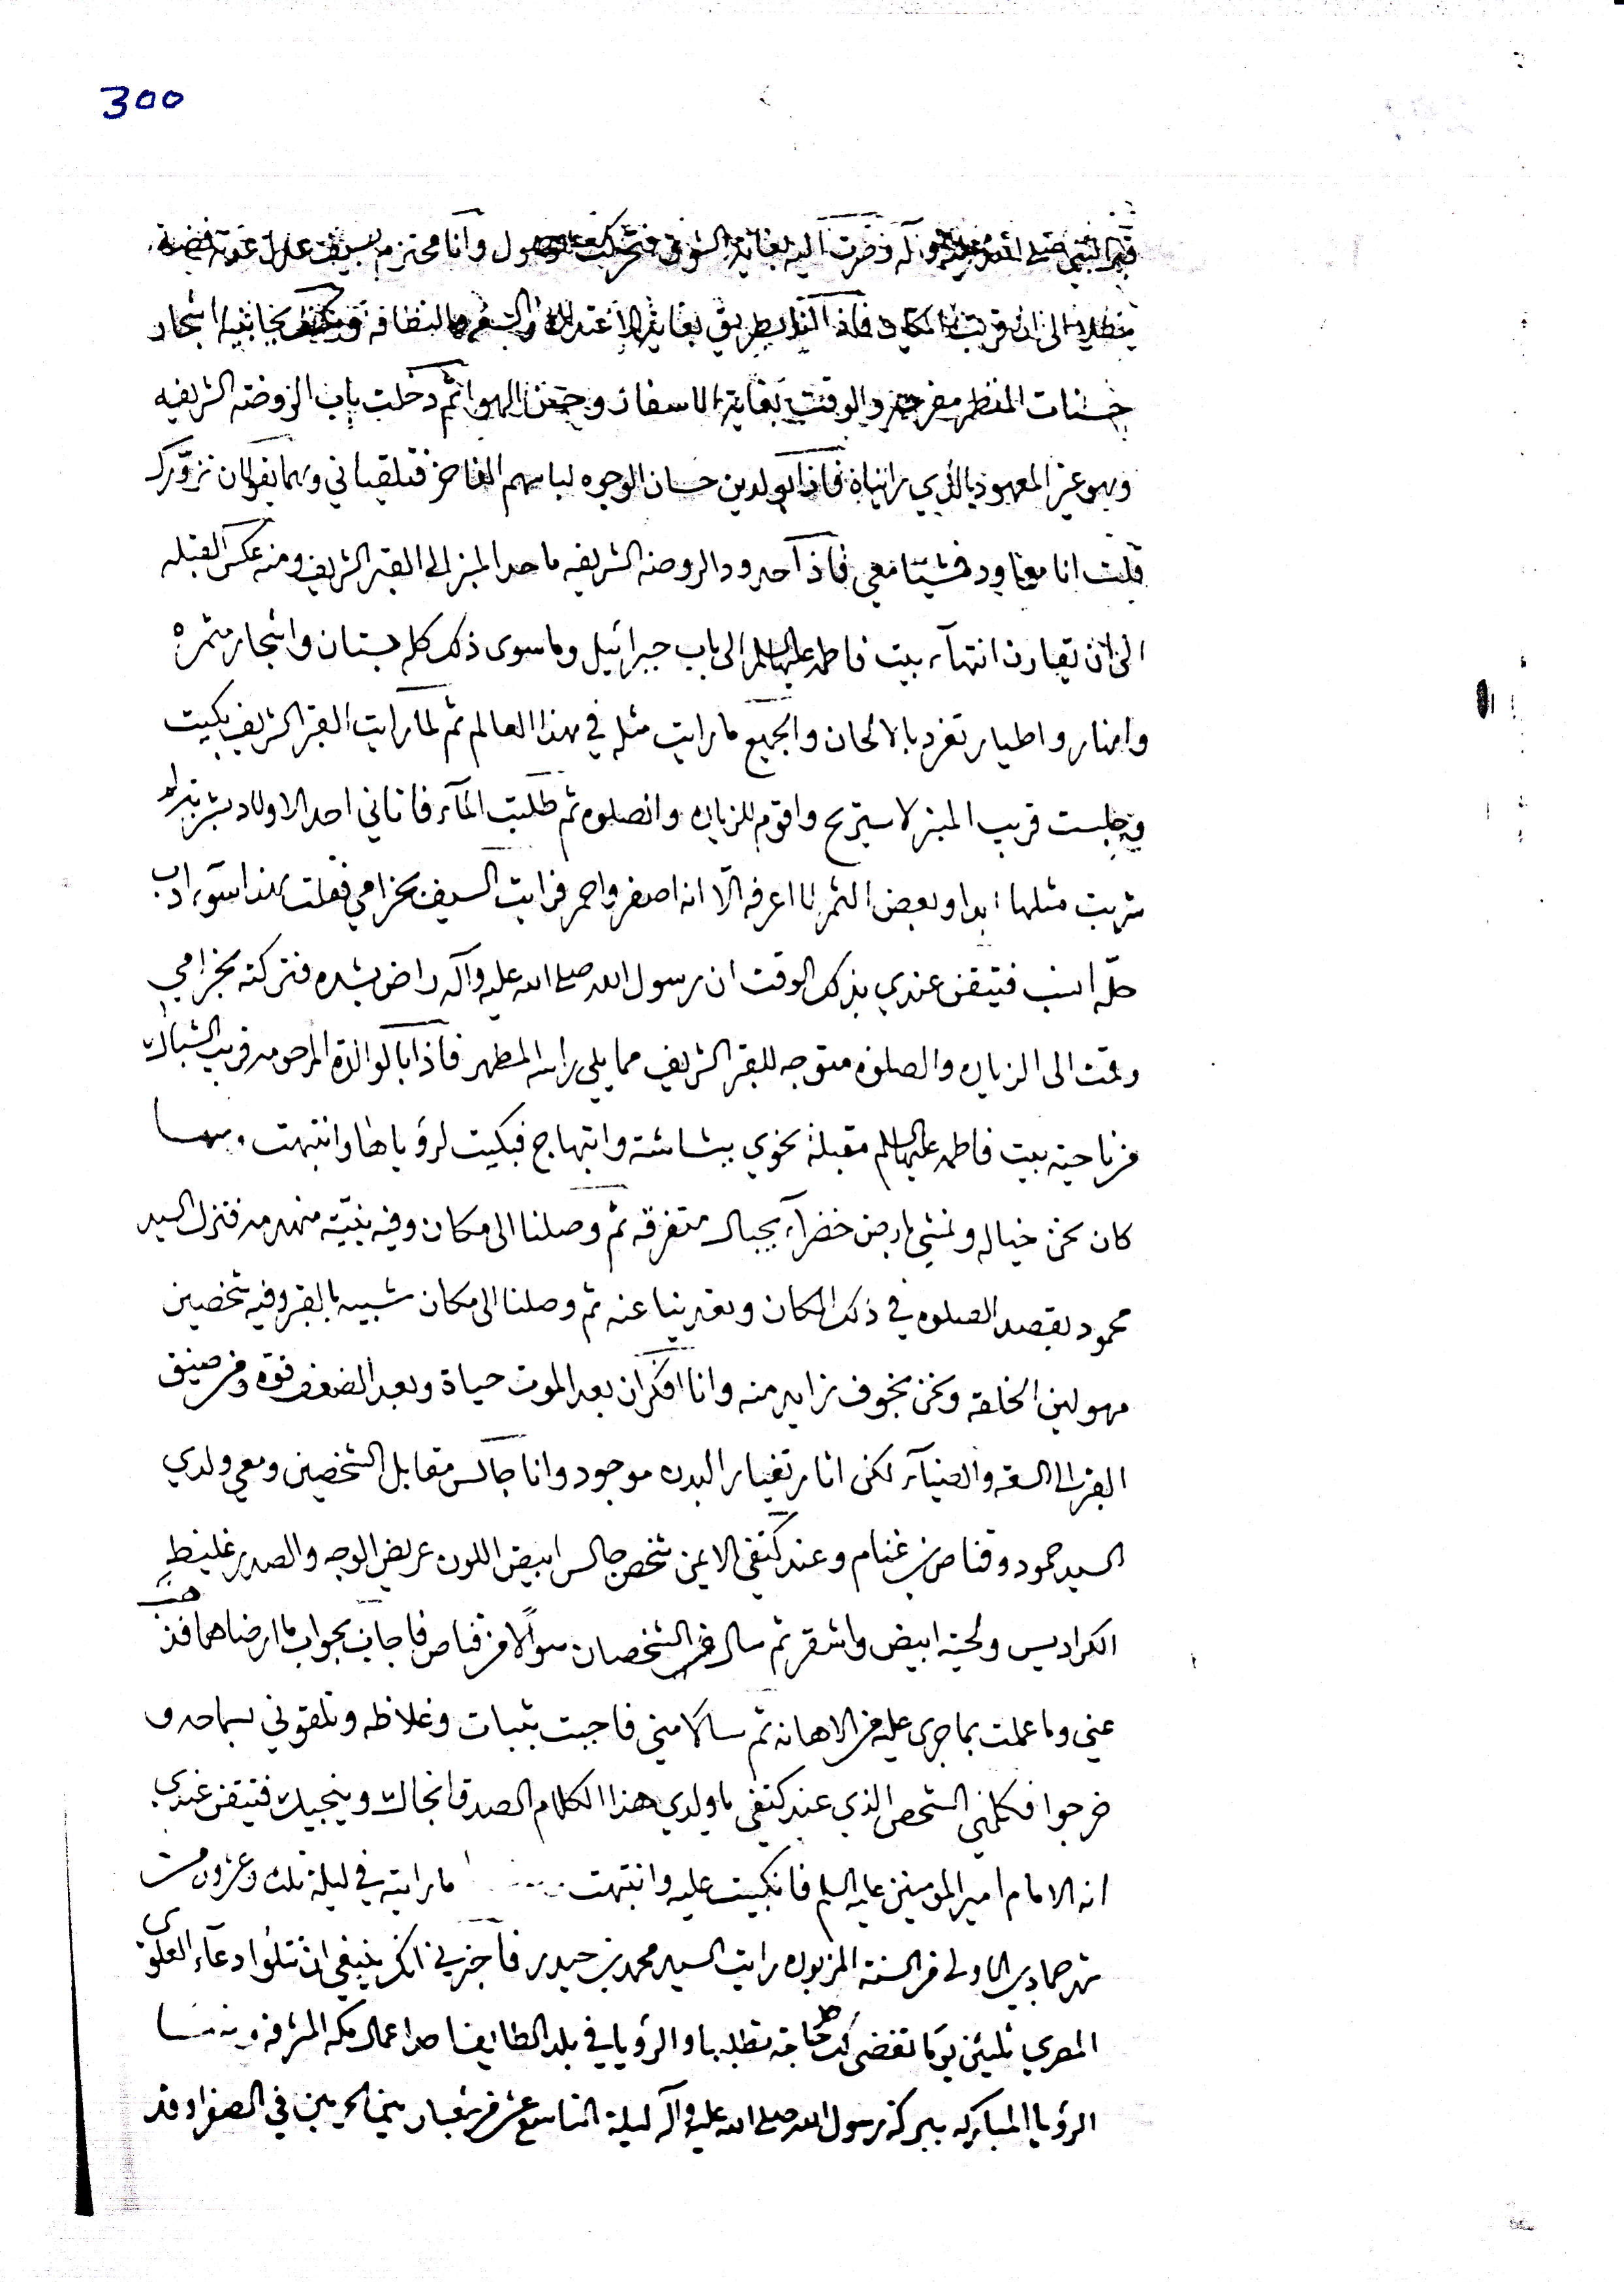 300
قبر النبي صلى الله عليه وآله فصرت اليه بغاية الشوق فتحركت وانا محتزم بسيف
الى ان قربت المكان فاذا انا بطريق بغاية الاعتدال والنظافة بجانبيه اشجار
حسنات المنظر مفرحة والوقت بغاية الاسفار وحسن الهوا ثم دخلت باب الروضه الشريفه
وهو غير المعهود الذي رايناه فاذا بولدين حسان الوجوه لباسهم الفاخر فتلقياني وهما يقولان نزورك
قلت انا معاود فمشيا معي فاذا حدود الروضه الشريفه ما حد المنبر الى القبر الشريف ومنه عكس القبله
الى ان تقارن انتهآء بيت فاطمه عليها السلم الى باب جبرائيل وما سوى ذلك كله بستان واشجار مثمره
وانهار واطيار تغرد بالالحان والجميع ما رايت مثله في هذا العالم ثم لما رايت القبر الشريف بكيت
وجلست قريب المنبر لاستريح واقوم للزياره والصلوه ثم طلبت المآء فاتاني احد الاولاد بشربة
شربت مثلها ابدا وبعض الثمر لا اعرفه الّا انه اصفر واحمر فرايت السيف بحزامي فقلت هذا سوء ادب
حلّه انسب فتيقن عندي بذلك الوقت ان رسول الله صلى الله عليه وآله راض بشده فتركته بحزامي
وقمت الى الزياره والصلوه متوجه للقبر الشريف مما يلي راسه المطهر فاذا بالوالدة المرحومه قريب الشباك
من ناحية بيت فاطمه عليها السلم مقبلة نحوي ببشاشة وابتهاج فبكيت لرؤياها وانتبهت ومنها
كان نحن خياله ونمشي بارض خضرآء بجبال متفرقه ثم وصلنا الى مكان وفيه بنيّة منهدمه فنزل السيد
محمود بقصد الصلوه في ذلك المكان وتعدينا عنه ثم وصلنا الى مكان شبيه بالقبر وفيه شخصين
مهولين الخلقه ونحن بخوف زايد منه وانا افكر ان بعد الموت حياة وبعد الضعف قوة ومن ضيق
القبر الى السعه والضيآء لكن اثار تغيار البدن موجود وانا جالس مقابل الشخصين ومعي ولدي
السيد حمود وقناص بن غنام وعند كتفي الايمن شخص جالس ابيض اللون عريض الوجه والصدر غليظ
الكراديس ولحيته ابيض واشقر ثم سال الشخصان سوالا من قناص فاجاب بجواب ما ارضاهما
عني وما علمت بما جرى عليه من الاهانه ثم سالا مني فاجبت بثبات وغلاظه وتلقوني بسماحه و
خرجوا فكلمني الشخص الذي عند كتفي يا ولدي هذا الكلام الصدق انجاك وينجيك فتيقن عندي
انه الامام امير المومنين عليه السلم فانكبيت عليه وانتبهت ما رايته في ليلة ثلث وعشرون من
شهر جمادي الاولى من السنة المزبوره رايت السيد محمد بن حيدر فاخبرني انكر ينبغي ان تتلوا دعآء العلوي
المصري ثلثين يوما تقضى لك حاجة تطلبها والرؤيا في بلد الطايف احد اعمال مكه المشرفه ومنها
الرؤيا المباركه ببركة رسول الله صلى الله عليه وآله ليلة التاسع عشر من شعبان بين الحرمين في الصفرا وقد